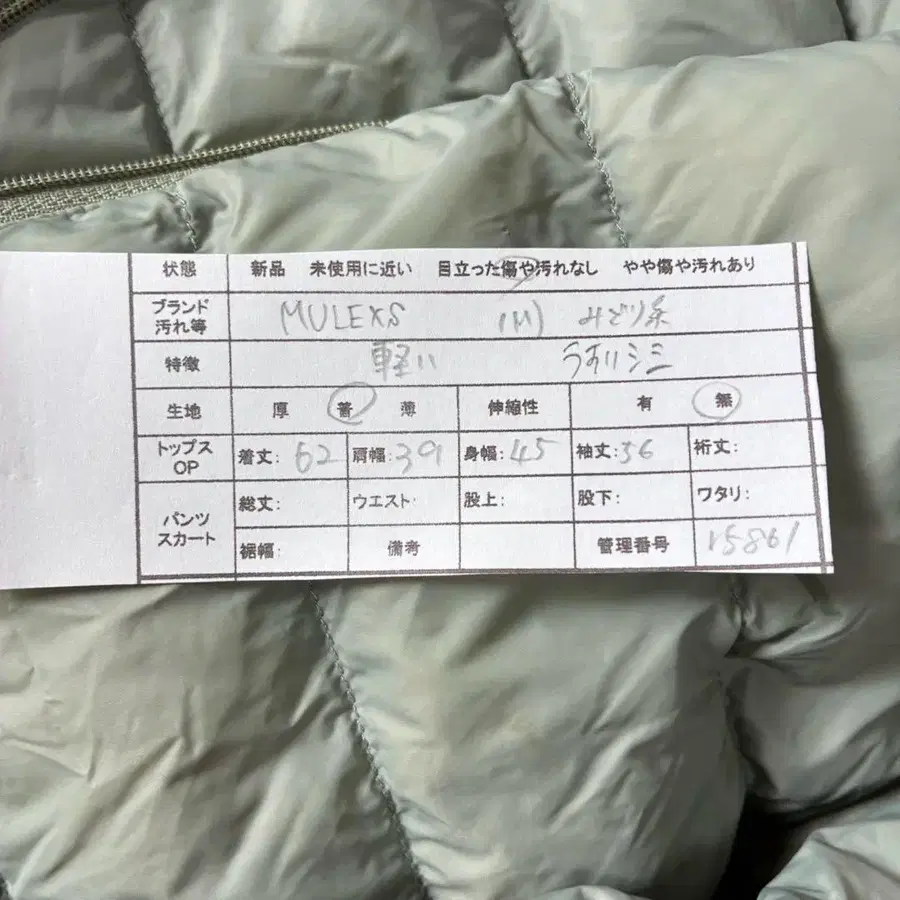 状態 新品 未使用に近い 目立った傷や汚れなし やや傷や汚れあり
ブランド 汚れ等 MULEXS (M) みどり系
特徴 軽い うすいシミ
生地 厚 普 薄 伸縮性 有 無
トップス OP 着丈: 62 肩幅: 39 身幅: 45 袖丈: 56 裄丈:
パンツ スカート 総丈: ウエスト: 股上: 股下: ワタリ:
裾幅: 備考 管理番号 15861